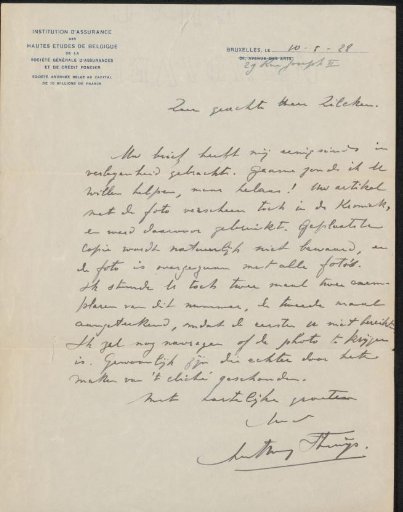 INSTITUTION D'ASSURANCE
DES
HAUTES ETUDES DE BELGIQUE
DE LA
SOCIÉTÉ GÉNÉRALE D'ASSURANCES
ET DE CRÉDIT FONCIER
SOCIÉTÉ ANONYME BELGE AU CAPITAL
DE 10 MILLIONS DE FRANCS
BRUXELLES, LE 10-8-28
AVENUE DES ARTS
29 Rue Joseph II
Zeer geachte Heer Zilcken.
Uw brief heeft mij eenigszins in
verlegenheid gebracht. Gaarne zou ik U
willen helpen, maar helaas! Uw artikel
met de foto verscheen toch in de Kroniek,
en werd daarvoor gebruikt. Geplaatste
copie wordt natuurlijk niet bewaard, en
de foto is overgegaan met alle foto's.
Ik stuurde U toch twee maal twee exem-
plaren van dit nummer, de tweede maal
aangeteekend, omdat de eersten U niet bereikten.
Ik zal nog navragen of de photo te krijgen
is. Gewoonlijk zijn die echter door het
maken van 't cliché geschonden.
Met hartelijke groeten